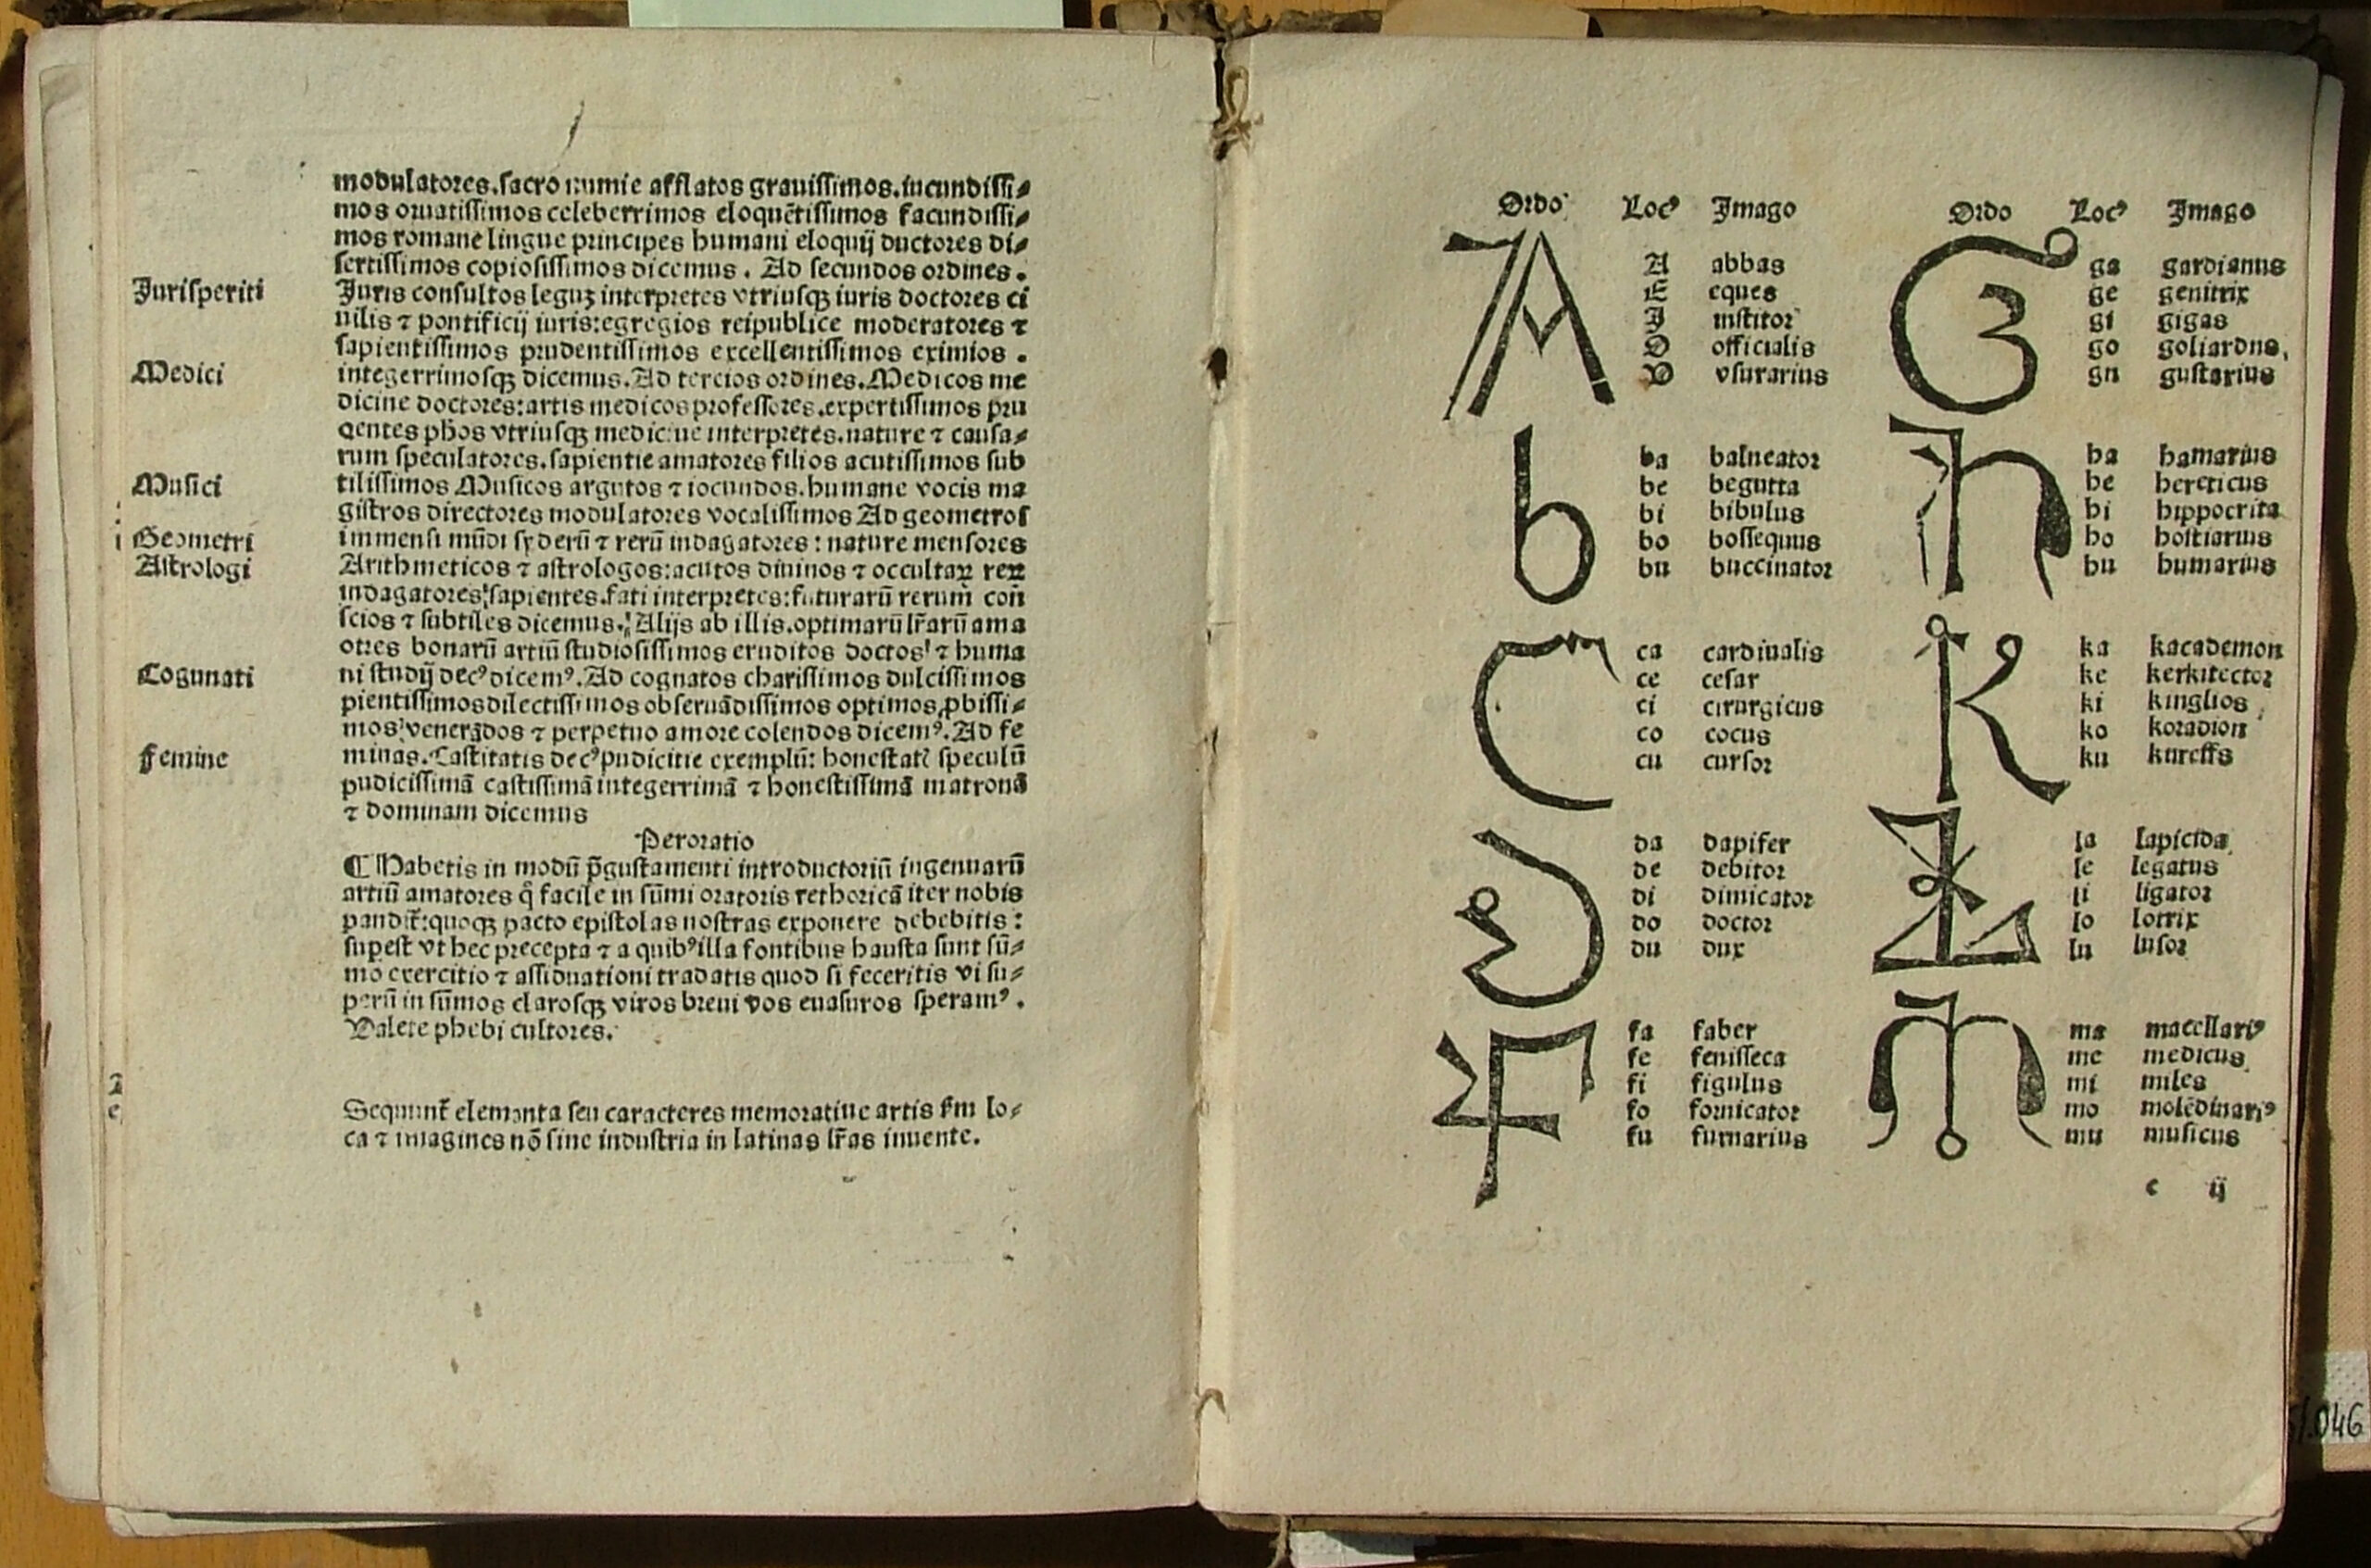 modulatores.sacro numie afflatos grauissimos.iucundissi⸗
mos ornatissimos celeberrimos eloquētissimos facundissi⸗
mos romane lingue principes humani eloquij ductores di⸗
sertissimos copiosissimos dicemus. Ad secundos ordines.
Jurisperiti
Juris consultos leguꝫ interpretes vtriusqꝫ iuris doctores ci
uilis ⁊ pontificij iuris:egregios reipublice moderatores ⁊
sapientissimos prudentissimos excellentissimos eximios.
Medici
integerrimosqꝫ dicemus.Ad tercios ordines.Medicos me
dicine doctores:artis medicos professores.expertissimos pru
dentes phōs vtriusqꝫ medicine interpretes.nature ⁊ causa⸗
rum speculatores.sapientie amatores filios acutissimos sub
Musici
tilissimos Musicos argutos ⁊ iocundos.humane vocis ma
gistros directores modulatores vocalissimos Ad geometros
Geometri
immensi mūdi syderū ⁊ rerū indagatores: nature mensores
Astrologi
Arithmeticos ⁊ astrologos:acutos diuinos ⁊ occultaꝝ reꝝ
indagatores:sapientes.fati interpretes:futurarū rerum con
scios ⁊ subtiles dicemus. Alijs ab illis.optimarū lr̄arū ama
otres bonarū artiū studiosissimos eruditos doctos ⁊ huma
Cognnati
ni studij decꝰ dicemꝰ.Ad cognatos charissimos dulcissimos
pientissimos dilectissimos obseruādissimos optimos ꝓbissi⸗
mos venerādos ⁊ perpetuo amore colendos dicemꝰ.Ad fe
femine
minas.Castitatis decꝰ pudicitie exemplū: honestatꝭ speculū
pudicissimā castissimā integerrimā ⁊ honestissimā matronā
⁊ dominam dicemus
Peroratio
¶ Habetis in modū p̄gustamenti introductoriū ingenuarū
artiū amatores q̊ facile in sūmi oratoris rethoricā iter nobis
pandit̄:quoqꝫ pacto epistolas nostras exponere debebitis:
supest vt hec precepta ⁊ a quibꝰ illa fontibus hausta sunt sū⸗
mo exercitio ⁊ assiduationi tradatis quod si feceritis vi su⸗
perū in sūmos clarosqꝫ viros breui vos euasuros speramꝰ.
Valete phebi cultores.
Sequunt̄ elementa seu caracteres memoratiue artis sm̄ lo⸗
ca ⁊ imagines nō sine industria in latinas lr̄as inuente.
Ordo Locꝰ Imago
A
A abbas
E eques
I institor
O officialis
V vsurarius
b
ba balneator
be begutta
bi bibulus
bo bossequus
bu buccinator
C
ca cardinalis
ce cesar
ci cirurgicus
co cocus
cu cursor
D
da dapifer
de debitor
di dimicator
do doctor
du dux
F
fa faber
fe fenisseca
fi figulus
fo fornicator
fu furnarius
Ordo Locꝰ Imago
G
ga gardianus
ge genitrix
gi gigas
go goliardus
gu gustarius
h
ha hamarius
he hereticus
hi hippocrita
ho hostiarius
hu humarius
K
ka kacademon
ke kerkitector
ki kinglios
ko koradion
ku kureffs
L
la lapicida
le legatus
li ligator
lo lotrix
lu lusor
M
ma macellariꝰ
me medicus
mi miles
mo molēdinariꝰ
mu musicus
c ij
046